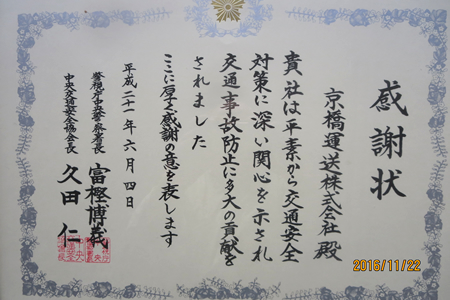 感謝状
京橋運送株式会社殿
貴社は平素から交通安全
対策に深い関心を示され
交通事故防止に多大の貢献を
されました
ここに厚く感謝の意を表します
平成二十一年六月四日
警視庁中央警察署長
富樫博義
中央交通安全協会長
久田仁
2016/11/22